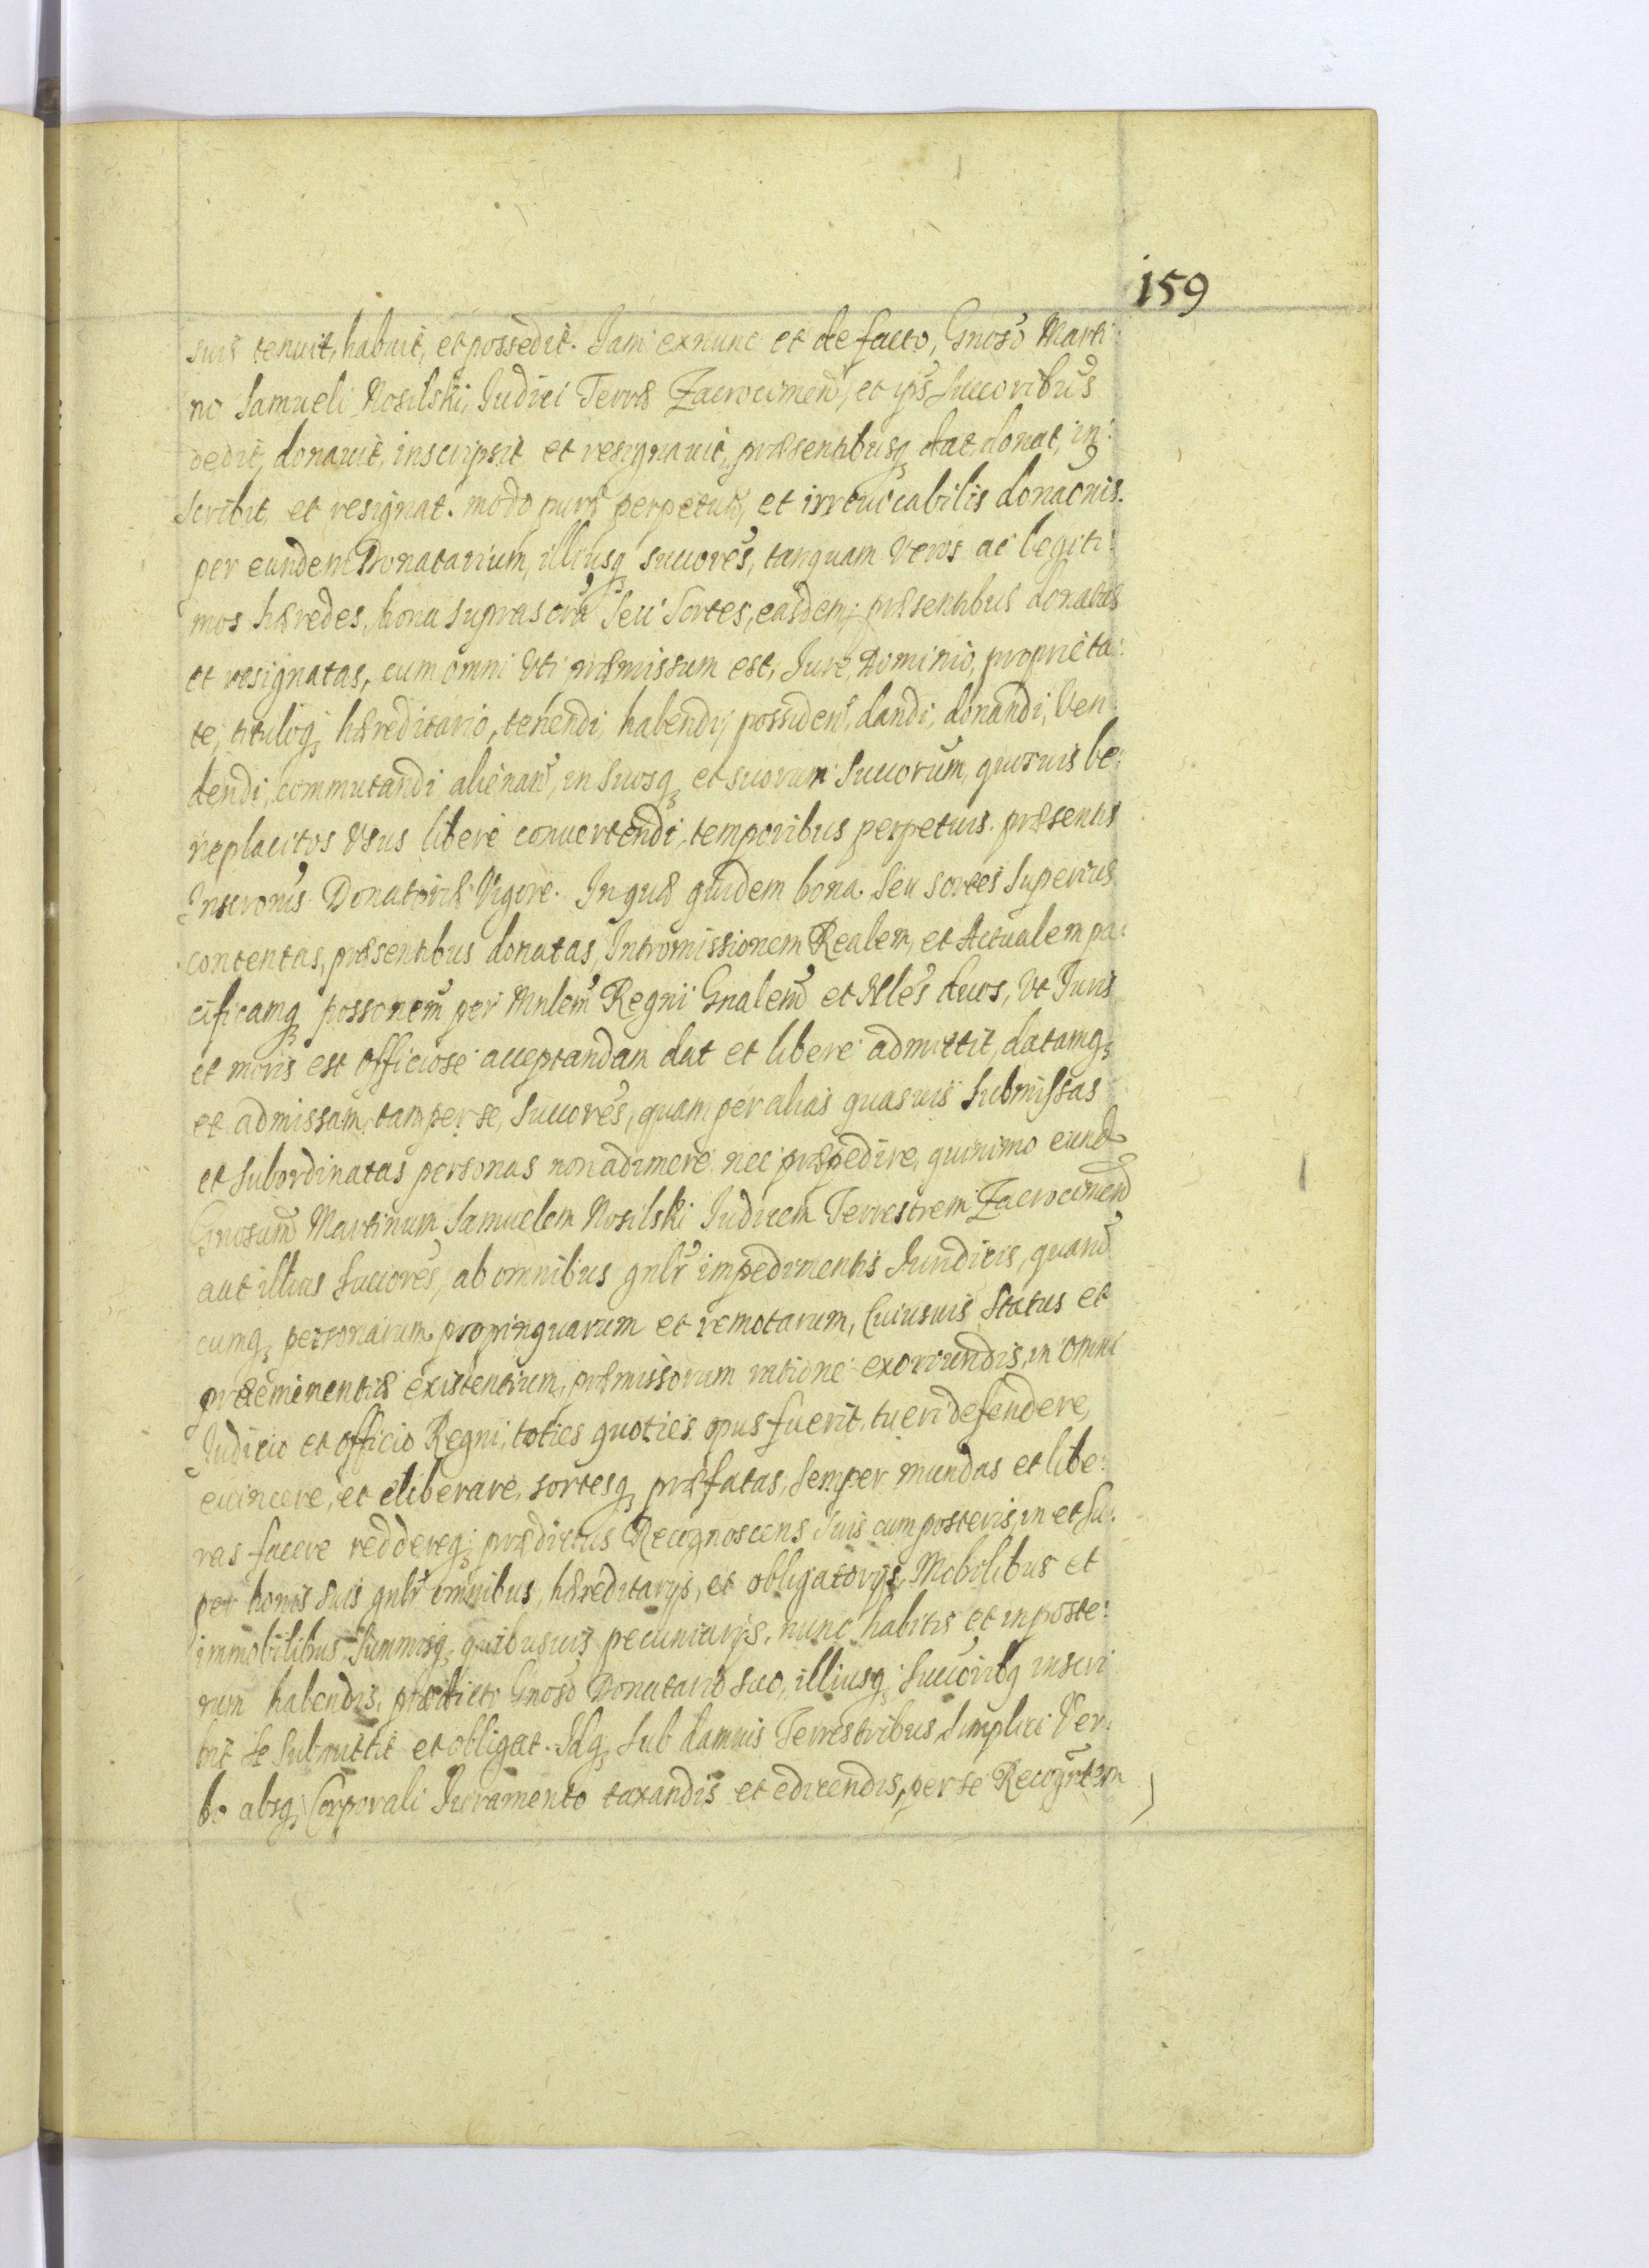 159
suis tenuit, habuit, et possedit. Jam exnunc et de facto, Gnoso Marti:
no Samueli Nosilski, Judici Terræ Zacrocimen, et ips Succoribus
dedit, donauit, inscripsit et resignauit, præsentibusq dat, donat, in:
scribit, et resignat. modo puræ perpetuæ, et irreuocabilis donaonis.
per eundem Donatarium, illiusq succores, tanquam veros ac legiti:
mos hæredes, bona suprascra seu Sortes, easdem, præsentibus donatas
et resignatas, cum omni Vti præmissum est, Jure, Dominio, proprieta:
te, tituloq hæreditario, tenendi, habendi, possiden, dandi, donandi, Ven
dendi, commutandi alienan, in suosq et suorum Succorum, quosuis be:
neplacitos Vsus libere conuertendi, temporibus perpetuis. præsentis
Inscronis Donatoriæ Vigore. In quæ quidem bona. Seu sortes Superius
contentas, præsentibus donatas, Intromissionem Realem, et Actualem pa:
cificamq possonem per Mnlem Regni Gnalem et Nles duos, Vt Juris
et moris est officiose acceptandam dat et libere admittit, datamq
et admissam, tam per se, Succores, quam per alias quasuis Submissas
et Subordinatas personas non adimere nec præpedire, quinimo eund
Gnosum Martinum Samuelem Nosilski Judicem Terrestrem Zacrocimen
aut illius Succores, ab omnibus gnlr impedimentis Juridicis, quarun
cumq personarum propinquarum et remotarum, Cuiusuis Status et
præeminentiæ existentium, præmissorum ratione exoriundis, in omni
Judicio et officio Regni, toties quoties opus fuerit, tueri defendere,
euincere, et eliberare, sortesq præfatas, Semper mundas et libe:
ras facere reddereq; prædictus Recognoscens Suis cum posteris, in et Su:
per bonis suis gnlr omnibus, hæreditarijs, et obligatorijs, Mobilibus et
immobilibus Summisq, quibusuis pecuniarijs, nunc habitis et inposte:
rum habendis, prædicto Gnoso Donatario suo, illiusq Succoribq inscri
bit se Submittit et obligat. Idq Sub damnis Terrestribus Simplici Ver:
bo absq Corporali Juramento taxandis et edicendis, per se Recogntem